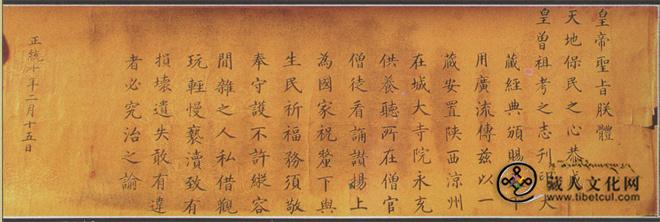 皇帝聖旨朕體
天地保民之心恭成
皇曾祖考之志刊印大
藏經典頒賜
用廣流傳茲以一
藏安置陝西涼州
在城大寺院永充
供養聽所在僧官
僧徒看誦讚揚上
為國家祝釐下與
生民祈福務須敬
奉守護不許縱容
間雜之人私借觀
玩輕慢褻瀆致有
損壞遺失敢有違
者必究治之諭
正統十年二月十五日
藏人文化网
www.tibetcul.com